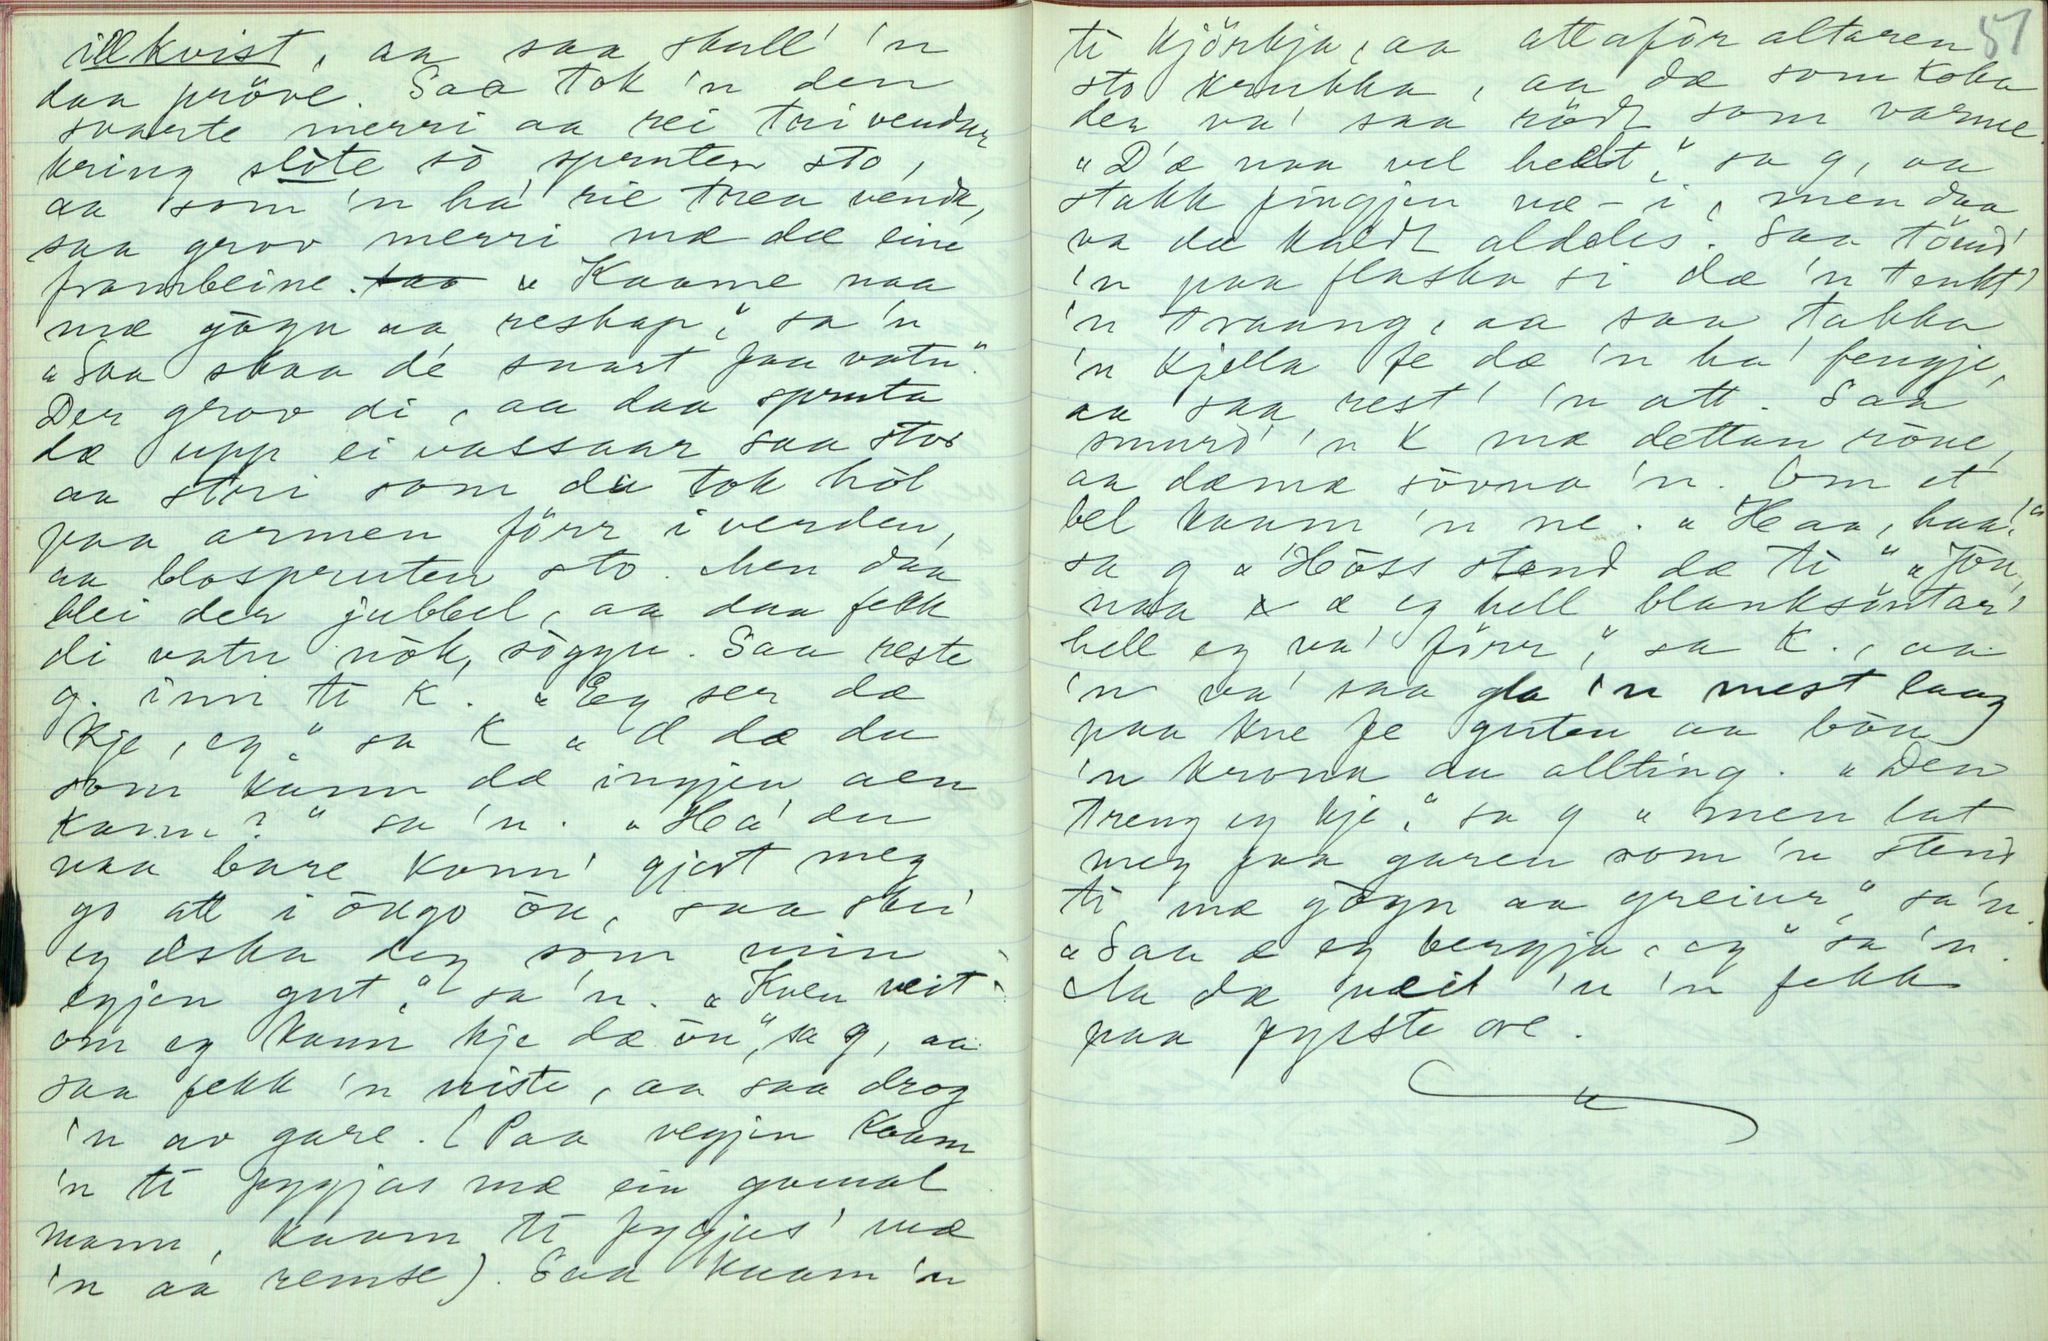 illkvist, aa saa skull' 'n
daa pröve. Saa tok 'n den
svarte merri aa rei tri vendur
kring slòte sò spruten sto,
aa som 'n ha' rie trea vend,
saa grov merri mæ dæ eine
frambeine. "Kaame naa
mæ gògn aa reskap," sa 'n
"Saa skaa dé snart faa vatn".
Der grov di, aa daa spruta
dæ upp ei vassaar saa stor
aa stri som da tok hòl
paa armen förr i verden,
aa blospruten sto. Men daa
blei der jubbel, aa daa fekk
di vatn nòk, sòggu. Saa reste
g. inn ti K. "Eg ser dæ
kje, eg" sa K "Æ dæ du
som kunn dæ ingjen aen
kann?" sa 'n. "Ha' du
naa bare kunn' gjort meg
go att i öugo òu, saa sku'
eg elska deg som min
egjen gut," sa 'n. "Kven veit
om eg kann kje dæ òu", sa g, aa
saa fekk 'n niste, aa saa drog
'n av gare. (Paa vegjen kaam
'n ti fygjas mæ ein gamal
mann, kaam ti fygjas' mæ
'n aa remse). Saa kaam 'n
57
ti kjörkja, aa attafòr altaren
sto krukka, aa dæ som koka
der va' saa rödt som varme.
"D'æ naa vel heitt," sa g, aa
stakk fingjen næ-i, men daa
va dæ kaldt aldeles. Saa tömd'
'n paa flaska si dæ 'n tenkt'
'n traang, aa saa takka
'n kjella fe dæ 'n ha' fengje,
aa saa rest' 'n att. Saa
smurd' 'n K mæ dettan ròne,
aa dæmæ sòvna 'n. Om et
bel kaam 'n ne. "Haa, haa!"
sa g "Hòss stend dæ ti" "Jou,
naa æ eg hell blanksöntar'
hell eg va' förr," sa K., aa
'n va' saa gla 'n mest laag
paa kne fe guten aa bòu
'n krona aa allting. "Den
treng eg kje," sa g "men lat
meg faa garen som 'n stend
ti mæ gògn aa greiur," sa 'n.
"Saa æ eg bergja, eg" sa 'n.
Aa dæ veit 'n 'n fekk
paa fyrste ore.